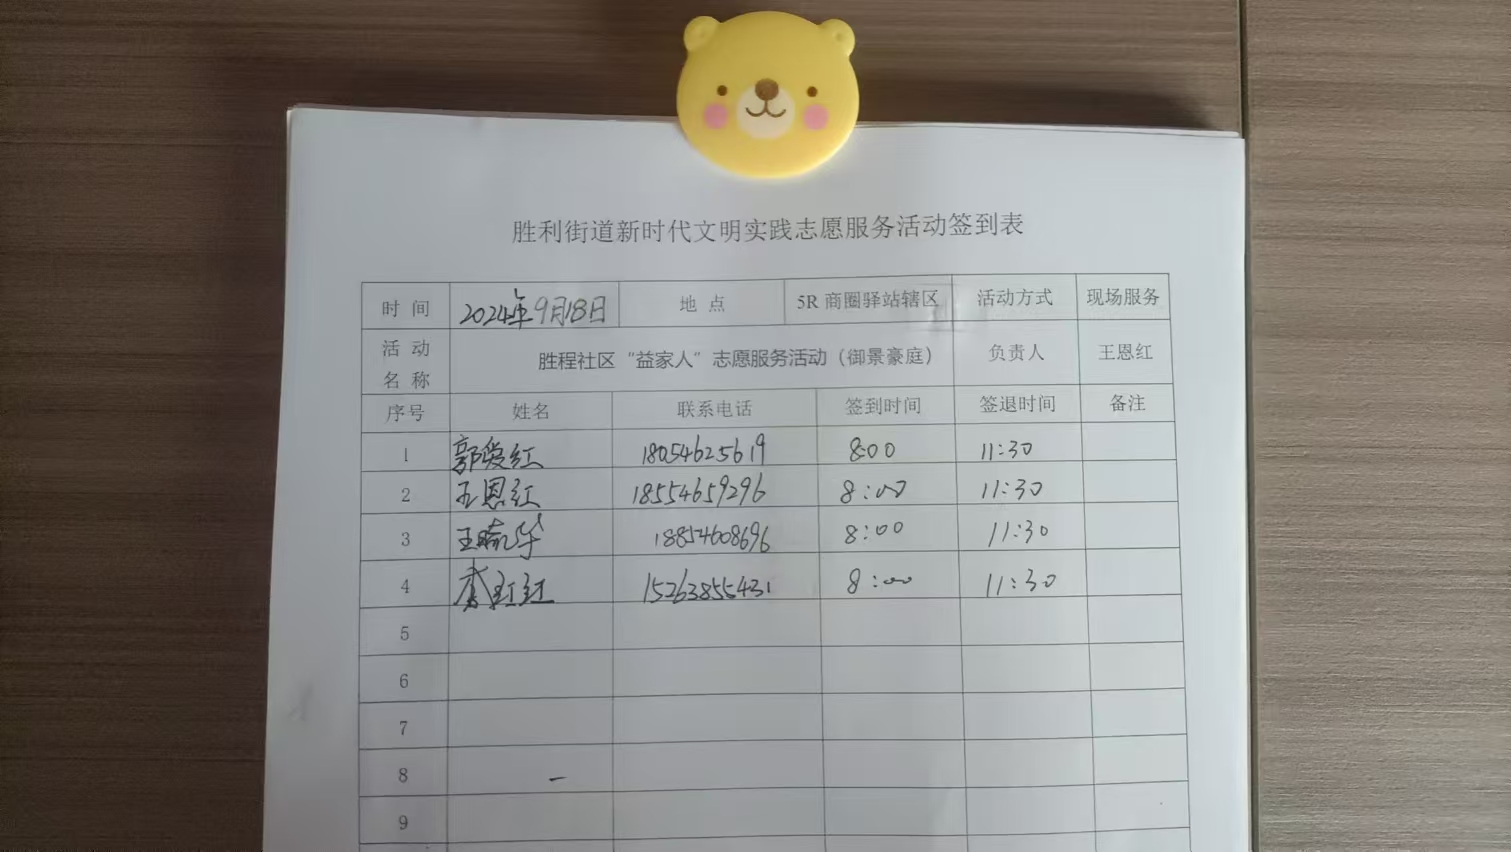 胜利街道新时代文明实践志愿服务活动签到表
时 间 2024年9月18日 地 点 5R 商圈驿站辖区 活动方式 现场服务
活 动 名 称 胜程社区“益家人”志愿服务活动（御景豪庭） 负责人 王恩红
序号 姓名 联系电话 签到时间 签退时间 备注
1 郭爱红 18054625619 8:00 11:30
2 王恩红 18554659296 8:00 11:30
3 王晓华 18854608696 8:00 11:30
4 李红红 15263855431 8:00 11:30
5
6
7
8
9